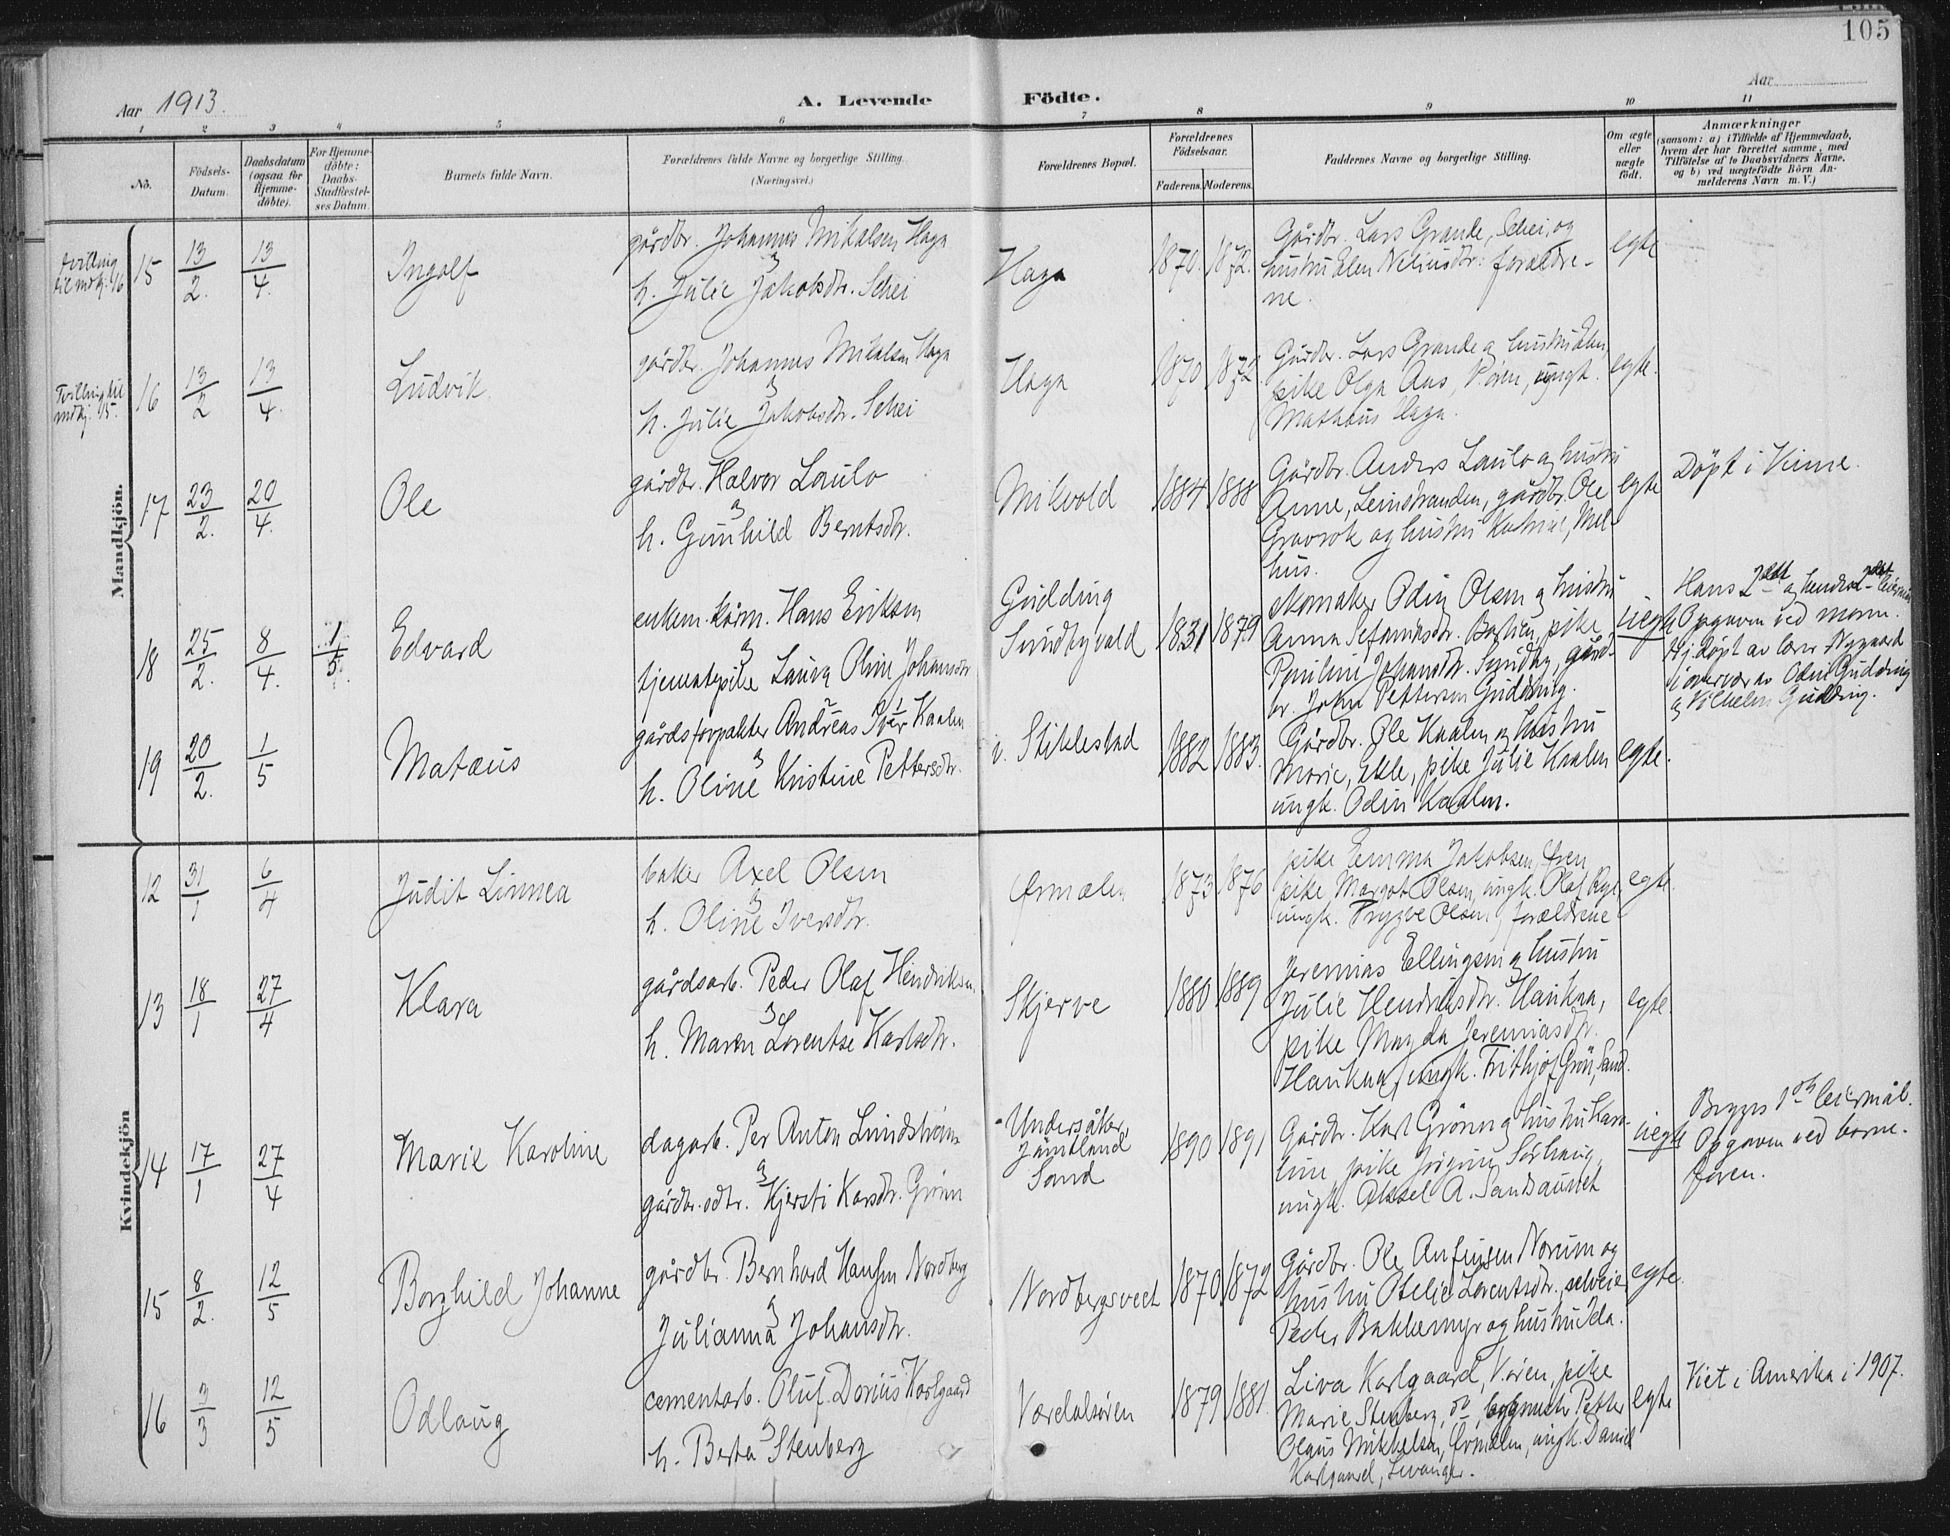 105
Aar 1913.
A. Levende Födte.
Aar
1 2 3 4 5 6 7 8 9 10 11
No.
Födsels-Datum.
Daabsdatum (ogsaa for Hjemme-döbte).
For Hjemme-döbte: Daabs-Stadfæstel-ses Datum.
Barnets fulde Navn.
Forældrenes fulde Navne og borgerlige Stilling. (Næringsvei.)
Forældrenes Bopæl.
Forældrenes Födselsaar.
Faderens. Moderens.
Faddernes Navne og borgerlige Stilling.
Om ægte eller uægte födt.
Anmærkninger
(saasom: a) i Tilfælde af Hjemmedaab, hvem der har forrettet samme, med Tilföielse af to Daabsvidners Navne, og b) ved uægtefödte Börn An-melderens Navn m. V.)
Mandkjön.
tvilling til mdkj. 16
15 13/2. 13/4. Ingolf
gårdbr. Johannes Mikalsen Haga
h. Julie Jakobsdr. Schei
Haga 1870. 1872.
Gårdbr. Lars Grande, Schei, og
hustru Elen Neliusdtr. forældre-
ne.
egte
Tvilling til mdkj. 15.
16 13/2 13/4. Ludvik.
gårdbr. Johannes Mikalsen Haga
h. Julie Jakobsdr. Schei
Haga 1870 1872.
Gårdbr. Lars Grande og hustru Elen,
pike Olga Aas, V.ören, ungk.
Mathæus Haga.
egte.
17 23/2. 20/4. Ole
gårdbr. Halvor Laulo
h. Gunhild Berntsdr.
Mikvold 1884 1888
Gårdbr. Anders Laulo og hustru
Anne, Leinstranden, gårdbr. Ole
Gravrok og hustru Katrine, Mel-
hus.
egte
Döpt i Vinne.
18 25/2. 8/4. 1/5. Edvard
enkem. kårm. Hans Eriksen
tjenestepike Laura Oline Johansdr
Gudding
Sundbyvald 1831 1879
skomaker Odin Olsen og hustru
Anna Sefaniasdr. Bastien, pike
Pauline Johansdr. Sundby, gård-
br. John Petterson Gudding.
uegte
Hans 2det og hendes 2det leiermål
Opgaven ved moren.
Hj.döpt av lærer Nygaard
i overvær av Odin Gudding
og Vilhelm Gudding.
19 20/2. 1/5 Matæus
gårdsforpakter Andreas Iver Kaalen
h. Oline Kristine Pettersdr.
v. Stiklestad 1882 1883.
Gårdbr. Ole Kaalen og hustru
Marie, Ekle, pike Julie Kaalen
ungk. Odin Kaalen.
egte.
Kvindekjön
12 31/1 6/4 Judit Linnea
baker Axel Olsen
h. Oline Iversdtr.
Örmælen 1873 1876
pike Emma Jakobsen, Ören
pike Margot Olsen, ungk. Olaf Rye,
ungk. Trygve Olsen, forældrene
egte.
13 18/1 27/4 Klara
gårdsarb. Peder Olaf Hendriksen.
h. Maren Lorentse Karlsdtr.
Skjerve 1880 1889
Jeremias Ellingsen og hustru
Julie Hendriksdtr. Haukaa,
pike Magda Jeremiasdtr.
Haukaa, ungk. Frithjof Grön, Sand.
egte.
14 17/1 27/4 Marie Karoline
dagarb. Per Anton Lindström
gårdbr. dtr. Kjersti Karsdr. Grönn
Undersåker,
Jämtland
Sand 1890 1891
Gårdbr. Karl Grönn og hustru Karo-
line, pike Jörgine Sörhaug,
ungk. Aksel A. Sandsaunet
uegte
Begges 1ste leiermål.
Opgaven ved barne-
faren.
15 8/2. 12/5 Borghild Johanne
gårdbr. Bernhard Hansen Nordberg
Julianna Johansdtr.
Nordbergsveet 1870 1872
Gårdbr. Ole Anfinsen Norum og
hustru Otelie Lorentsdtr., selveier
Peder Bakkemyr og hustru Ida.
egte.
16 3/3 12/5 Odlaug
cementarb. Oluf Dorius Karlgaard
h. Berta Stenberg
Værdalsören 1879 1881.
Liva Karlgaard, V.ören, pike
Marie Stenberg, do, bygmester Petter
Olaus Mikkelsen, Örmælen, ungk. Daniel
Karlgaard, Levanger.
egte
Viet i Amerika i 1907.